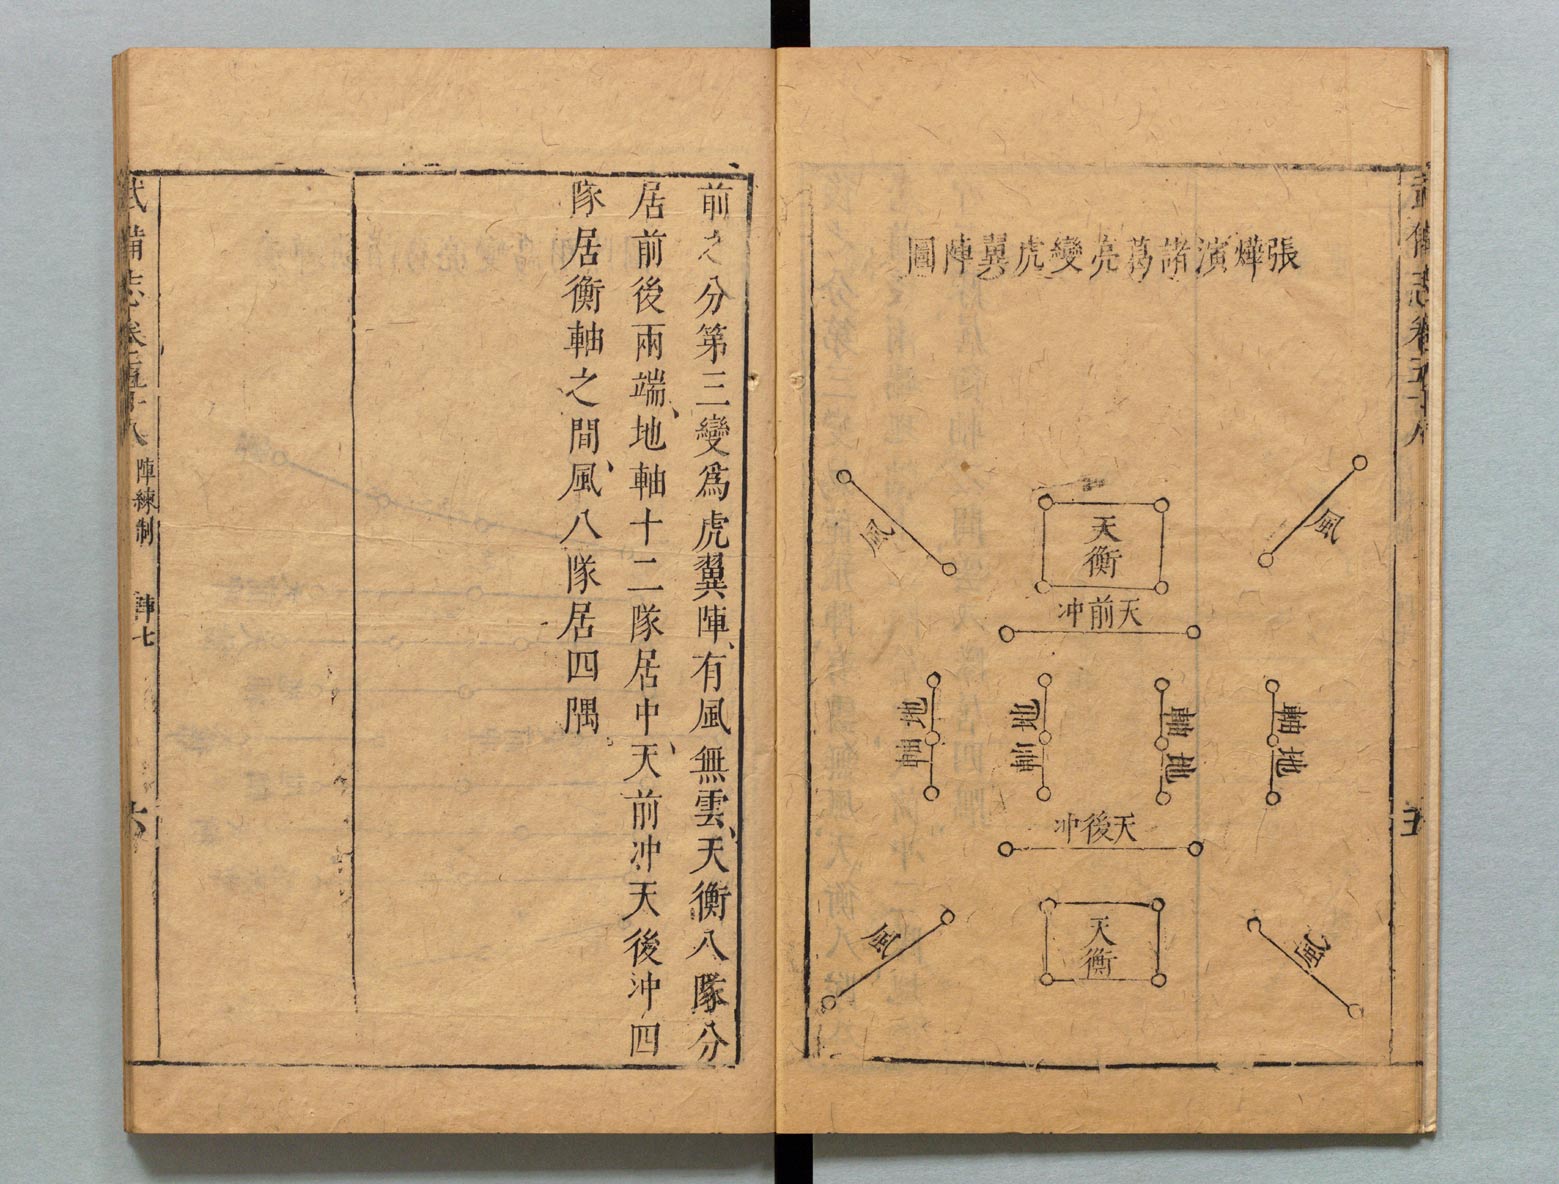 張燁演諸葛亮變虎翼陣圖
風
天衡
風
天前冲
軸地
軸地
地軸
地軸
天後冲
風
天衡
風
武備志卷五十八
五
前之分第三變爲虎翼陣、有風無雲、天衡八隊分
居前後兩端、地軸十二隊居中、天前冲天後冲四
隊居衡軸之間、風八隊居四隅。
武備志卷五十八 陣練制 陣七
六